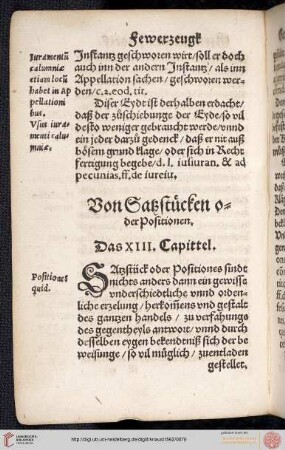 Fewerzeugk
Iuramentũ
calumniæ
etiam locũ
habet in ap
pellationi
bus.
Vsus iura-
menti calu-
mniæ.
Instantz geschworen wirt/soll er doch
auch inn der andern Instantz/als inn
Appellation sachen/geschworen wer-
den/c.2.eod.tit.
Diser Eyde ist derhalben erdacht/
daß der zůschiebunge der Eyde/so vil
desto weniger gebraucht werde/vnnd
ein jeder darzů gedenck/daß er nit auß
bösem grund klage/oder sich in Recht
fertigung begebe/d.l. iusiuran. & ad
pecunias.ff.de iureiu.
Von Satzstücken o-
der Positionen.
Das XIII. Capittel.
Positiones
quid.
SAtzstück oder Positiones sindt
nichts anders dann ein gewisse
vnderschiedtliche vnnd orden-
liche erzelung/herkom̃ens vnd gestalt
des gantzen handels/zu verfahungs
des gegentheyls antwort/vnnd durch
desselben eygen bekendtniß sich der be
weisunge/so vil müglich/zuentladen
gestellet.